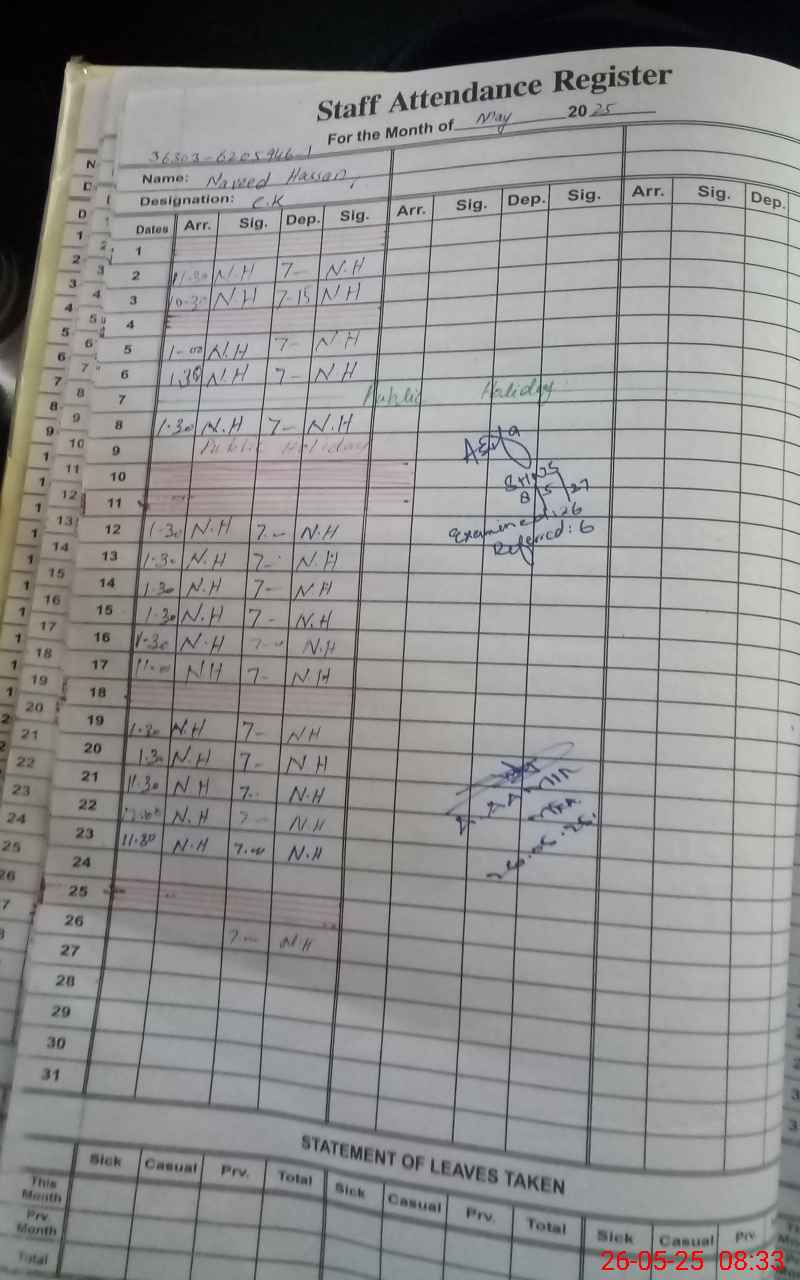 Staff Attendance Register
For the Month of May 2025
36303-6205946-1
Name: Naveed Hassan,
Designation: C.K
Dates Arr. Sig. Dep. Sig. Arr. Sig. Dep. Sig. Arr. Sig. Dep.
1
2 11-30 N.H 7- N.H
3 10-30 N H 7-15 N H
4
5 1-00 N.H 7- N H
6 1.30 N.H 7- N.H
7 Public Holiday
8 1.30 N.H 7- N.H
9 Public Holiday
10
11
12 1.30 N.H 7.- N.H
13 1.30 N.H 7- N.H
14 1.30 N.H 7- N.H
15 1.30 N.H 7- N.H
16 1-30 N.H 7- N.H
17 11-00 NH 7- N.H
18
19 1.30 N.H 7- NH
20 1.30 N.H 7- N H
21 11.30 N.H 7- N.H
22 N.H 7- N.H
23 11.30 N.H 7.00 N.H
24
25
26 7- NH
27
28
29
30
31
Examined: 26
Referred: 6
26.05.25.
STATEMENT OF LEAVES TAKEN
Sick Casual Prv. Total Sick Casual Prv. Total Sick Casual Prv
This Month
Prv. Month
Total
26-05-25 08:33